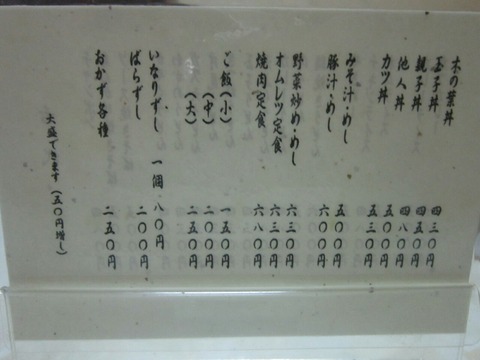 木の葉丼 四三〇円
玉子丼 四五〇円
親子丼 四八〇円
他人丼 五〇〇円
カツ丼 五三〇円
みそ汁・めし 五〇〇円
豚汁・めし 六〇〇円
野菜炒め・めし 六三〇円
オムレツ定食 六三〇円
焼肉定食 六八〇円
ご飯(小) 一五〇円
(中) 二〇〇円
(大) 二五〇円
いなりずし 一個 八〇円
ばらずし 二〇〇円
おかず各種 二五〇円
大盛できます(五〇円増し)